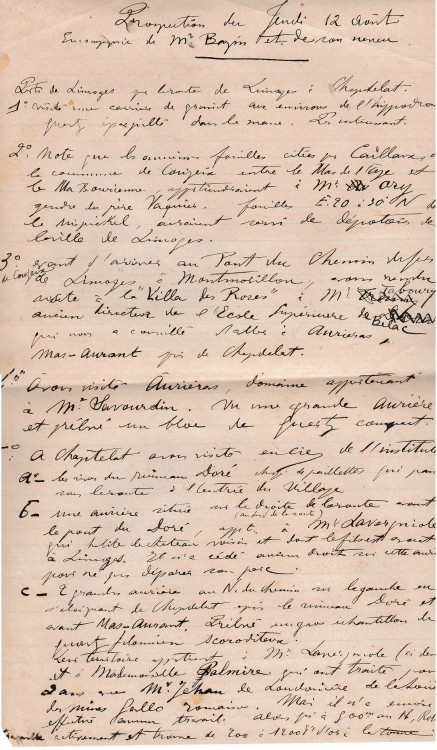 Prospection du Jeudi 12 Août
En compagnie de Mr Bazin et de son neveu
de Limoges par la route de Limoges à Chaptelat.
1° visité une carrière de granit aux environs de l'hippodrome
quartz éparpillé dans la masse. Peu intéressant.
2° Note que les anciennes fouilles citées par Caillaux,
la commune de Couzeix entre le Mas de l'Age et
le Mas Bourienne, appartiendraient à Mr Ory
gendre du père Vaquier. fouilles E. 20 à 30° N
le mispickel, auraient servi de dépotoirs de
la ville de Limoges.
3° avant d'arriver au Pont du Chemin de fer
de Couzeix
de Limoges à Montmorillon, avons rendu
visite à la "Villa des Roses" à Mr Tabourg
ancien directeur de l'Ecole Supérieure de
Bellac
qui nous a conseillé à Aurieras,
Mas-Aurant près de Chaptelat.
Avons visité Aurieras, domaine appartenant
à Mr Savourdin. Vu une grande Aurière
et prélevé un bloc de quartz compact.
A Chaptelat avons visité en Cie de l'institute
a- les rives du ruisseau Doré paillettes qui
sous la route à l'entrée du Village
b- une aurière située sur la droite de la route avant
le pont du Doré, appt. à Mr Lavergniole
qui habite le chateau voisin et dont le fils est avocat
à Limoges. Il n'a cédé aucun droit sur cette aurière
pour ne pas déparer son parc.
c- 2 grandes aurières au N. du chemin sur la gauche en
s'éloignant de Chaptelat après le ruisseau Doré et
avant Mas-Aurant. Prélevé un gros échantillon de
quartz filonien scoroditeux.
Leur territoire appartient à Mr Lavergniole (ci des
et à Mademoiselle Palmire qui ont traité pour
2 ans avec Mr Jehan de
des mines Gallo romaines. Mais il n'a encore
effectué aucun travail. alors qu'à 900m au N.
actuellement et trouve de 200 à 1200 gr d'or à la tonne